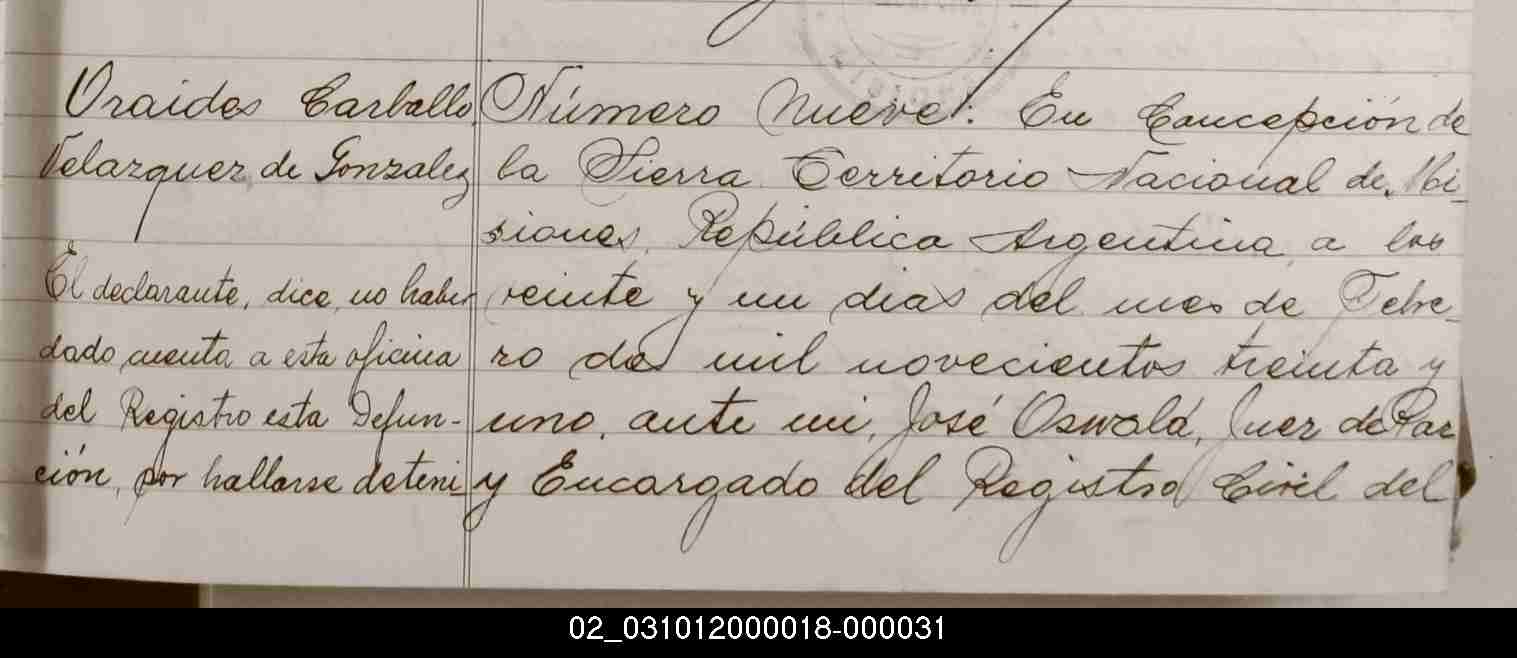 Oraides Carballo
Velazquez de Gonzalez
El declarante, dice, no haber
dado cuenta a esta oficina
del Registro esta Defun-
ción, por hallarse deteni
Número Nueve: En Concepción de
la Sierra Territorio Nacional de Mi-
siones, República Argentina, a los
veinte y un dias del mes de Febre-
ro de mil novecientos treinta y
uno, ante mi, José Oswald, Juez de Paz
y Encargado del Registro Civil del
02_031012000018-000031